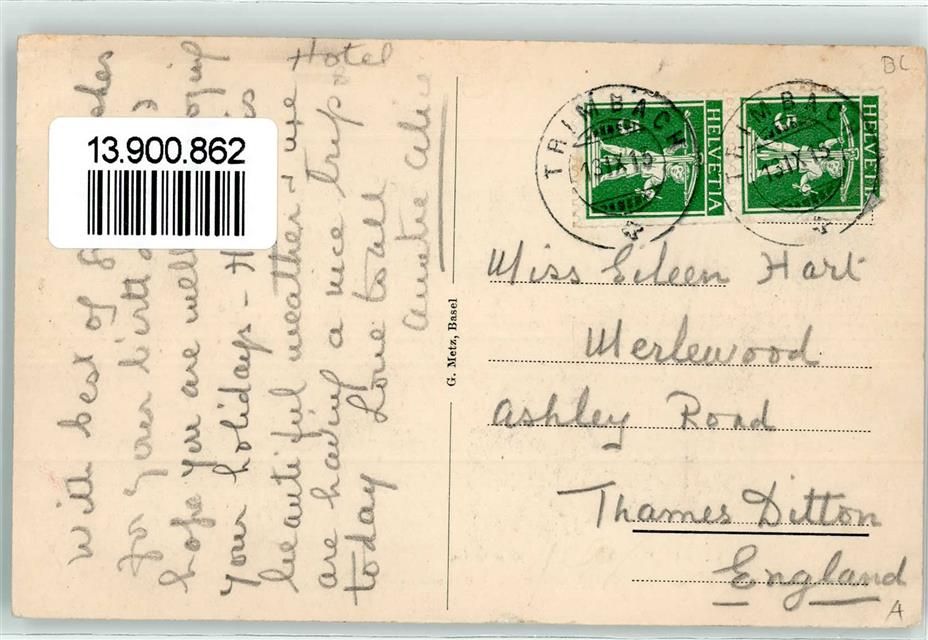 With best of
for your birthday
hope you are well
your holidays - H
beautiful weather + we
are having a nice trip
today Love to all
Auntie Alice
Hotel
13.900.862
G. Metz, Basel
TRIMBACH
13 IX 15
HELVETIA
TRIMBACH
13 IX 15
HELVETIA
Miss Eileen Hart
Merlewood
Ashley Road
Thames Ditton
England
BL
A